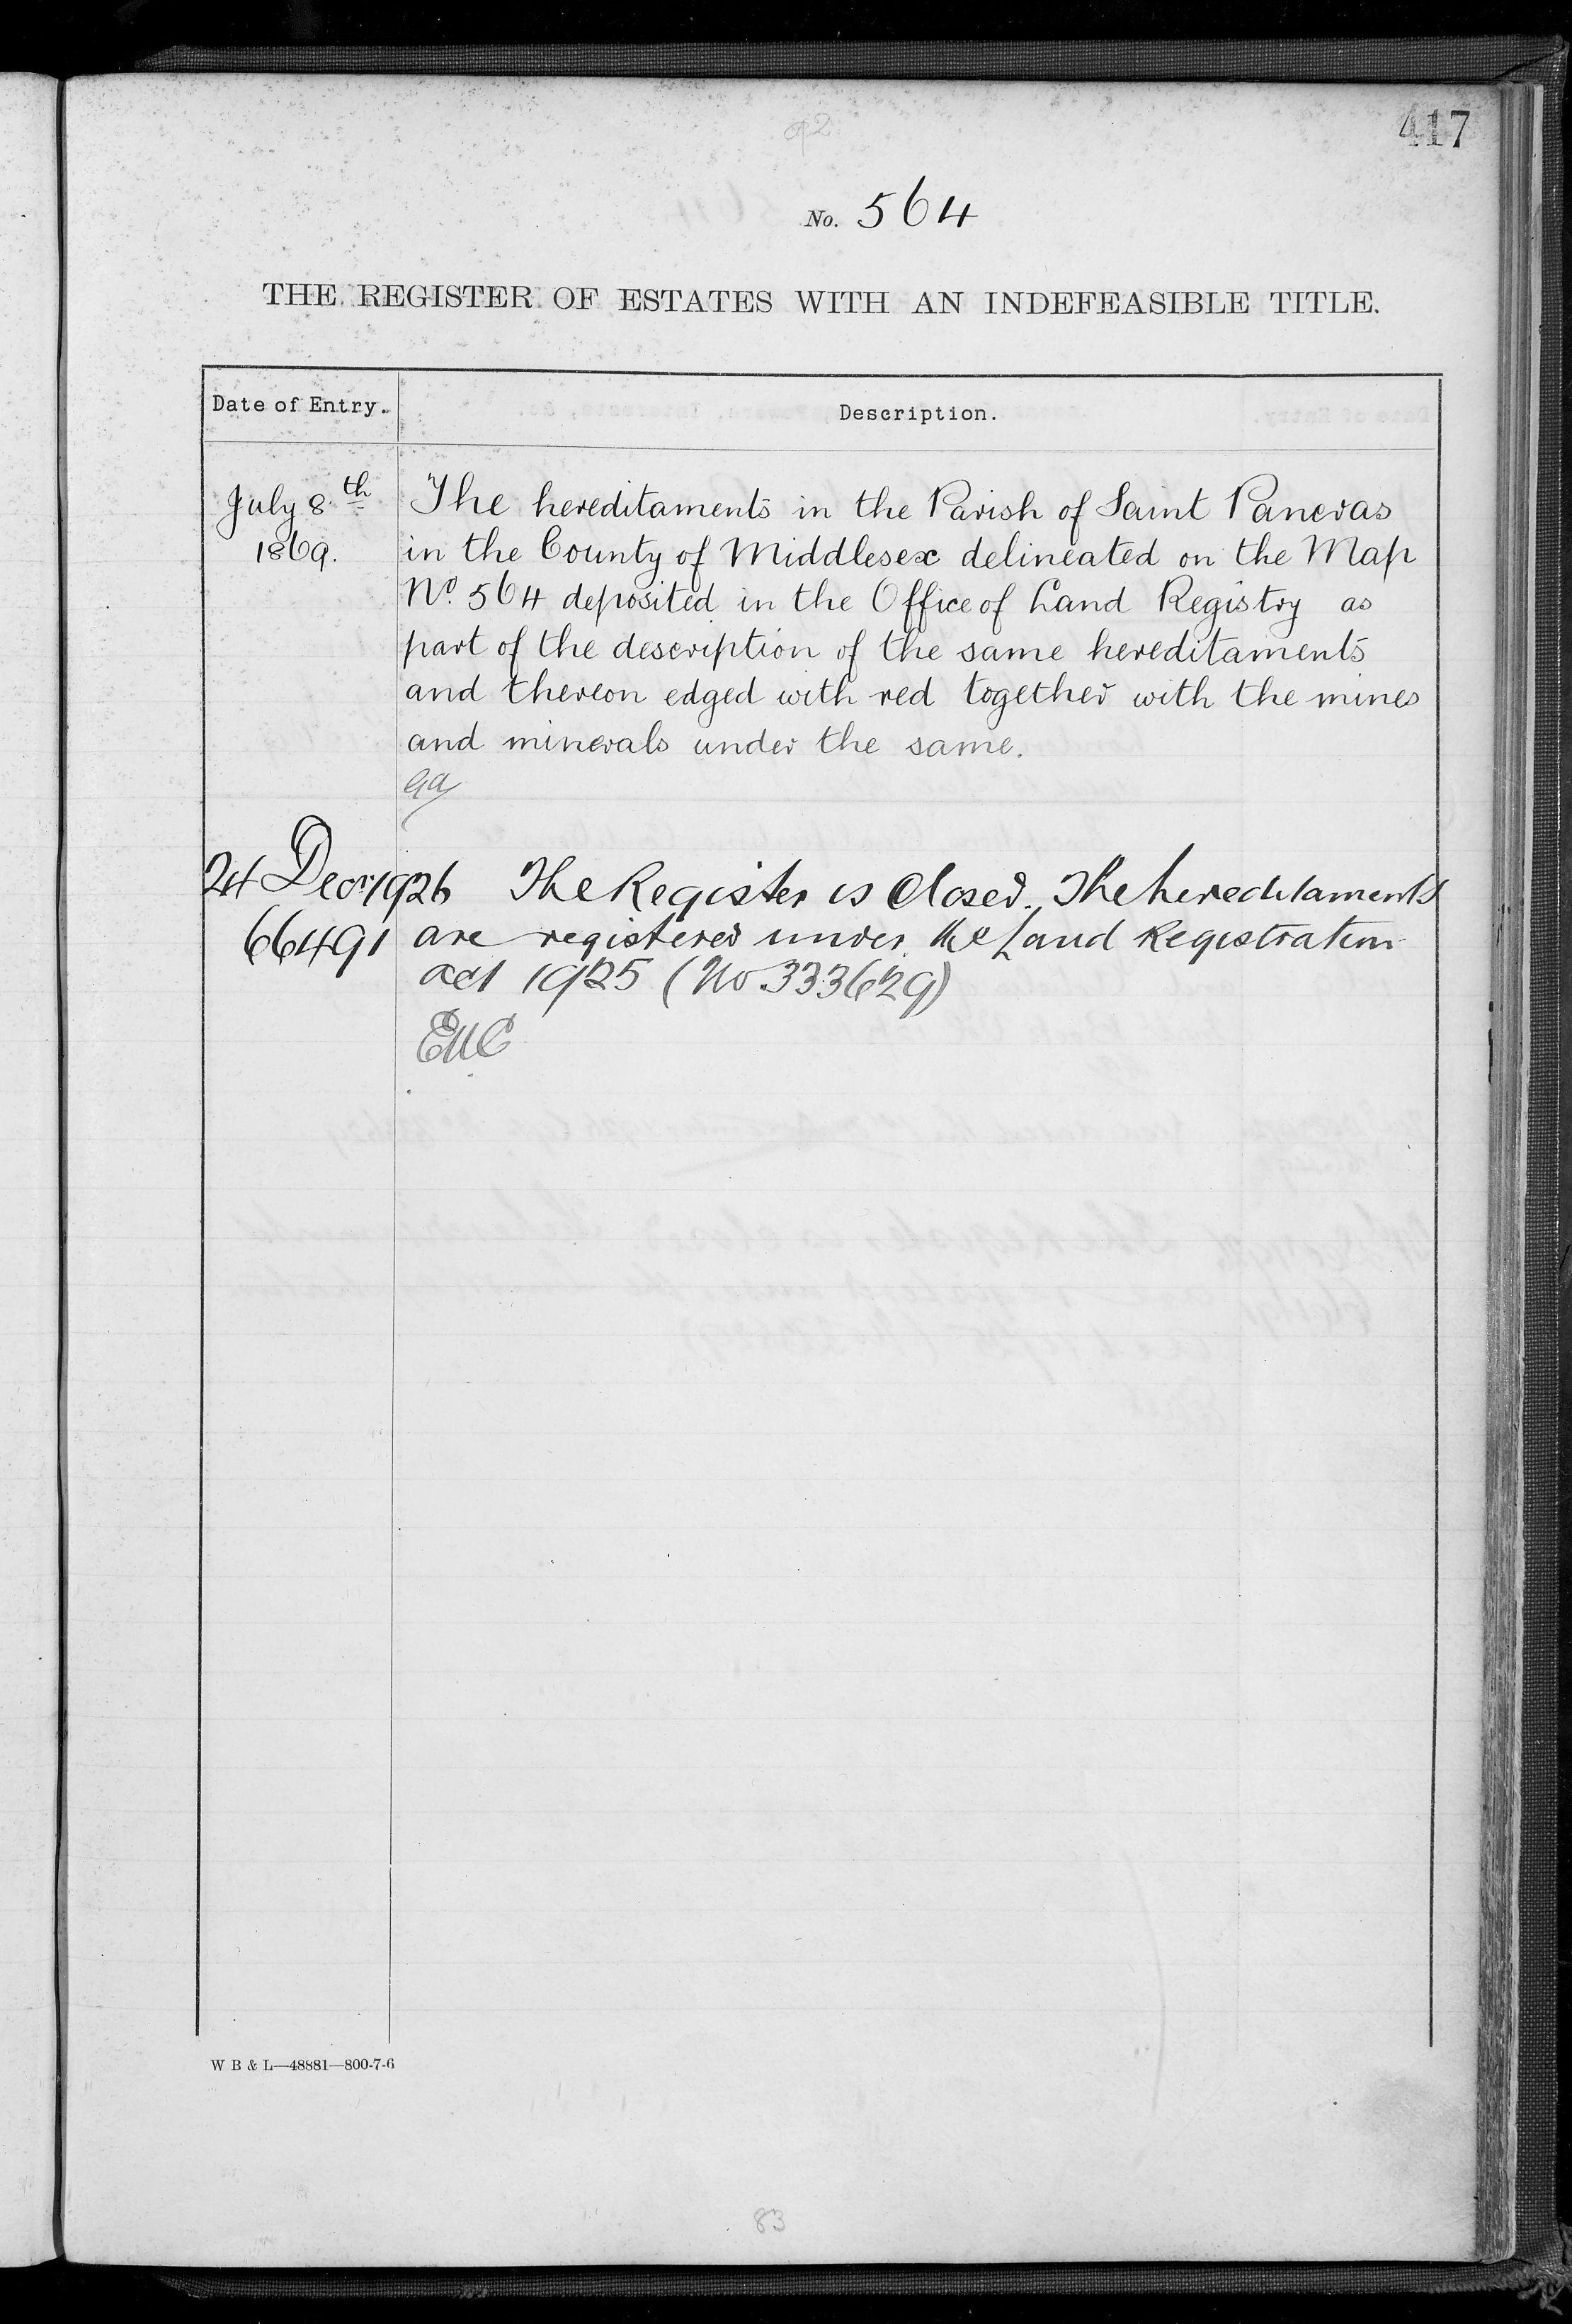 417
No. 564
THE REGISTER OF ESTATES WITH AN INDEFEASIBLE TITLE.
Date of Entry. Description.
July 8th The hereditaments in the Parish of Saint Pancras
1869. in the County of Middlesex delineated on the Map
No. 564 deposited in the Office of Land Registry as
part of the description of the same hereditaments
and thereon edged with red together with the mines
and minerals under the same.
24 Decr 1926 The Register is closed. The hereditaments
66491 are registered under the Land Registration
act 1925 (No 333629)
W B & L—48881—800-7-6
83